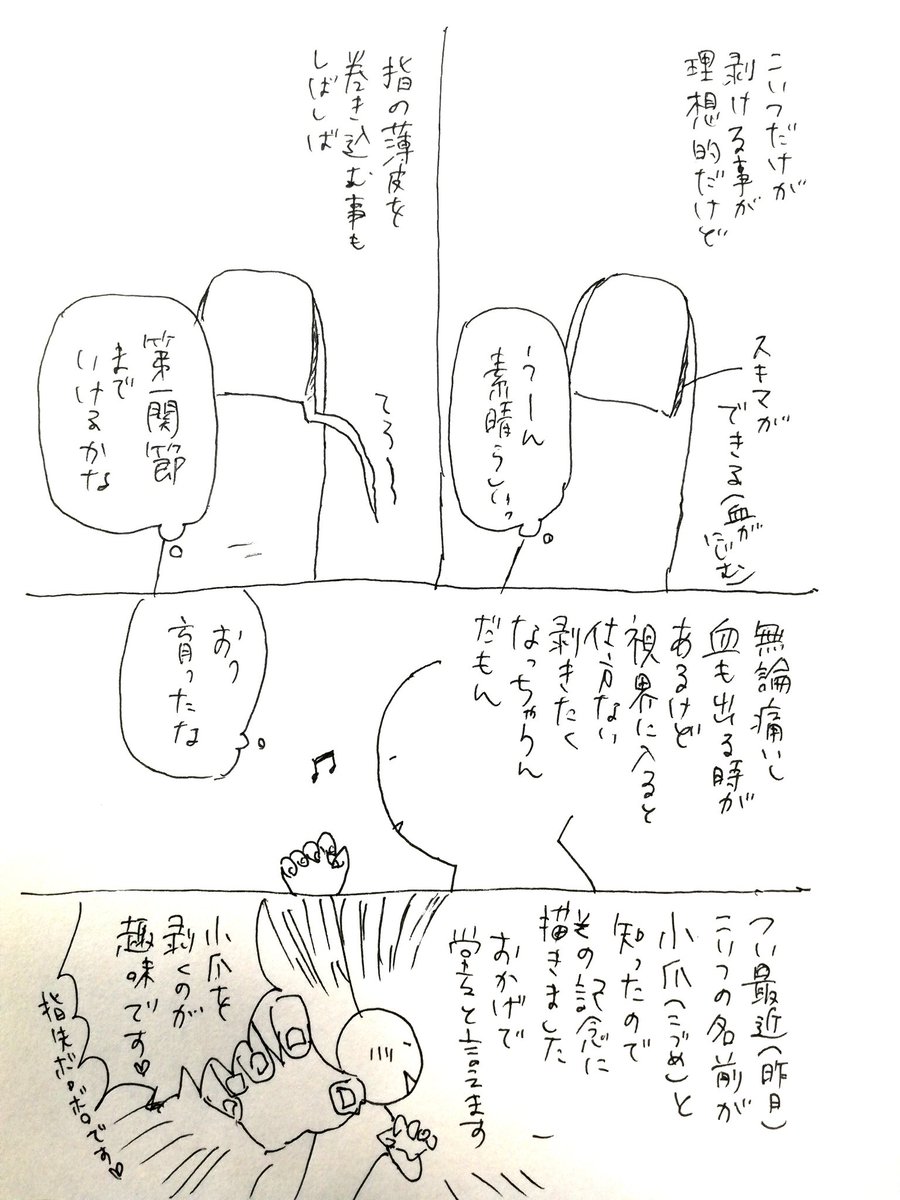 こいつだけが
剥ける事が
理想的だけど
スキマが
できる(血が
にじむ)
うーん
素晴らしいっ
指の薄皮を
巻き込む事も
しばしば
てろーーん
第一関節
まで
いけるかな
無論痛いし
血も出る時が
あるけど
視界に入ると
仕方ない
剥きたく
なっちゃうん
だもん
おっ
育ったな
つい最近(昨日)
こいつの名前が
小爪(こづめ)と
知ったので
その記念に
描きました
おかげで
堂々と言えます
小爪を
剥くのが
趣味です♡
指先ボロボロです♡